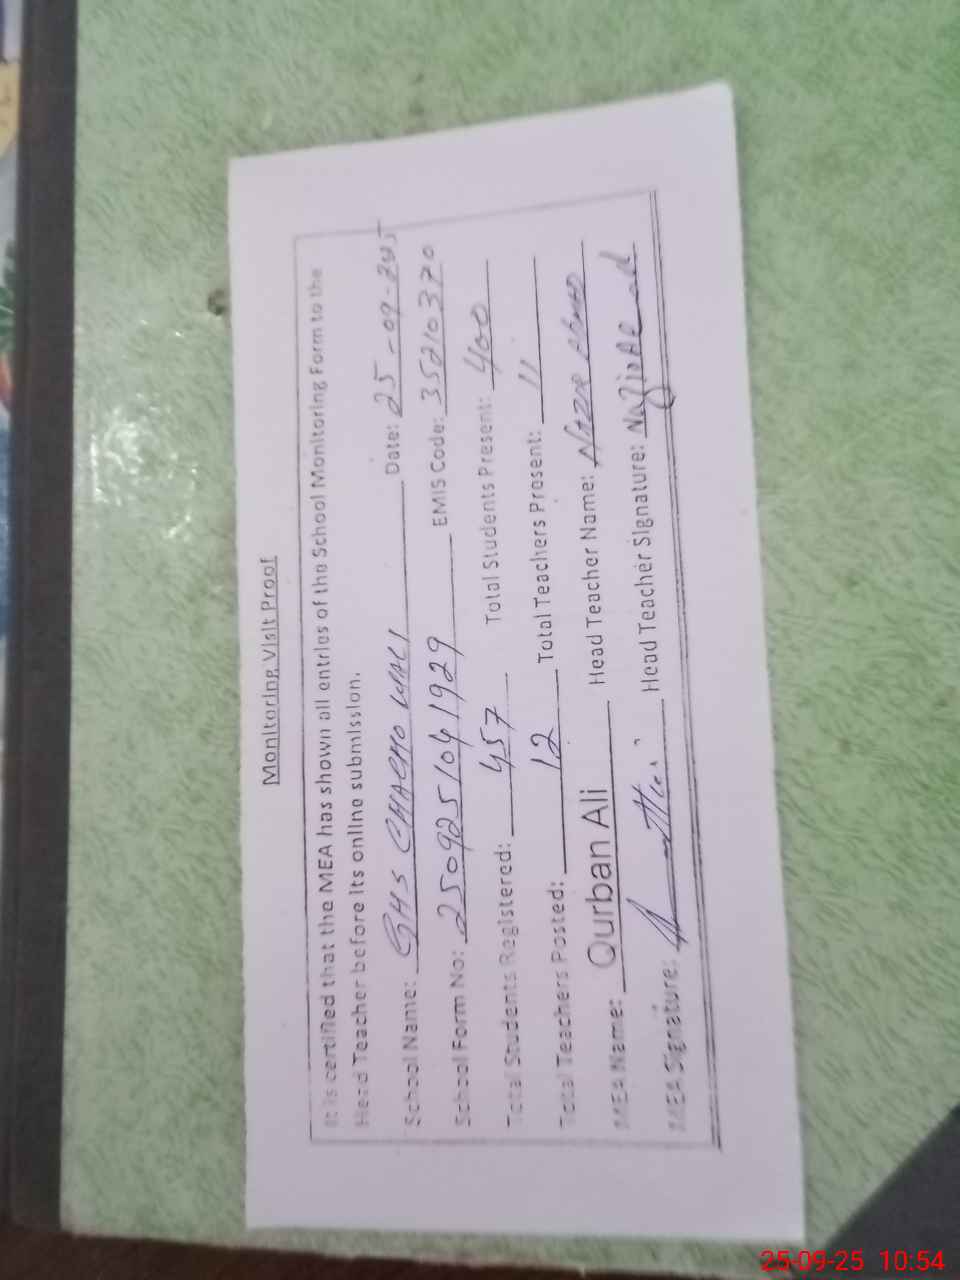 Monitoring Visit Proof
It is certified that the MEA has shown all entries of the School Monitoring Form to the
Head Teacher before its online submission.
School Name: GHS CHACHO WALI Date: 25-09-2025
School Form No: 2509251041929 EMIS Code: 35210370
Total Students Registered: 457 Total Students Present: 400
Total Teachers Posted: 12 Total Teachers Present: 11
MEA Name: Qurban Ali Head Teacher Name:
MEA Signature: Head Teacher Signature:
25-09-25 10:54